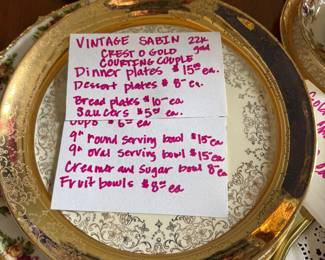 VINTAGE SABIN 22K
CREST O GOLD gold
COURTING COUPLE
Dinner plates $15.00 ea.
Dessert plates $8- ea.
Bread plates $10- ea
Saucers $5 00 ea.
Cups $6 00 ea
9" round serving bowl $15 ea
9" oval serving bowl $15 ea
Creamer and sugar bowl 8- ea
Fruit bowls $8 00 ea